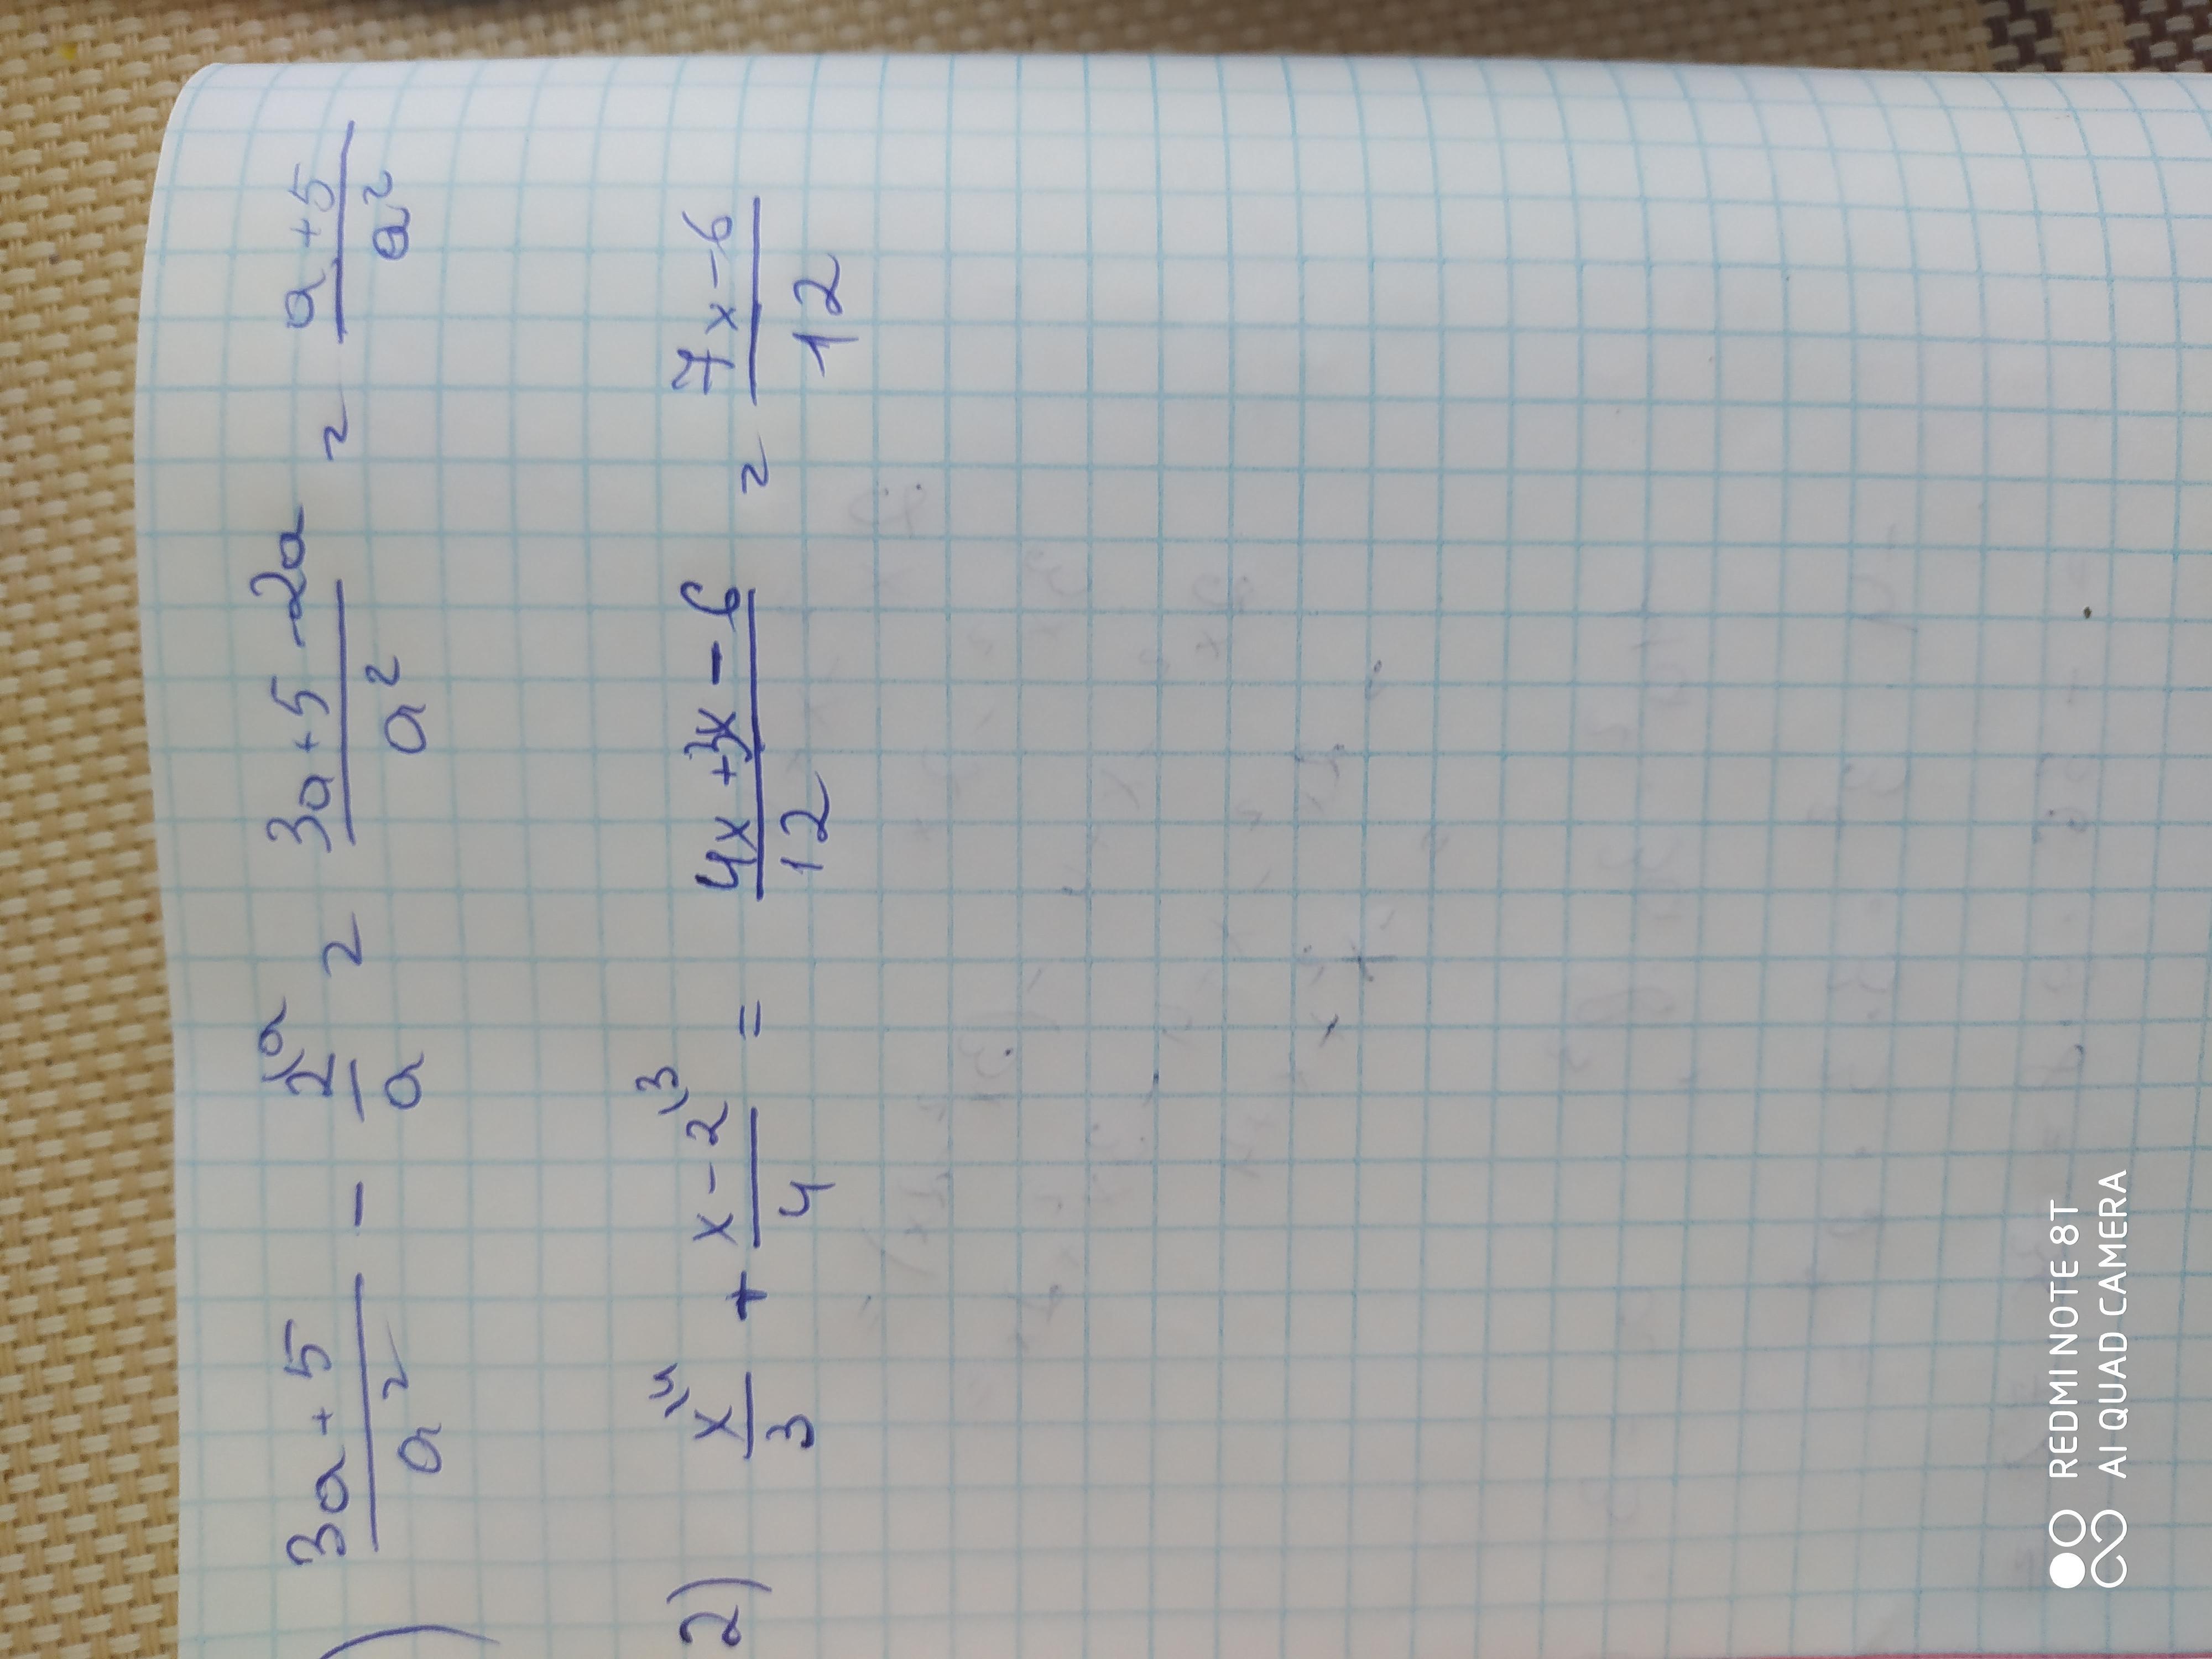 ) \frac{3a+5}{a^2} - \frac{2^{\backslash a}}{a} = \frac{3a+5-2a}{a^2} = \frac{a+5}{a^2}
2) \frac{x^{\backslash 4}}{3} + \frac{x-2^{\backslash 3}}{4} = \frac{4x+3x-6}{12} = \frac{7x-6}{12}
REDMI NOTE 8T
AI QUAD CAMERA